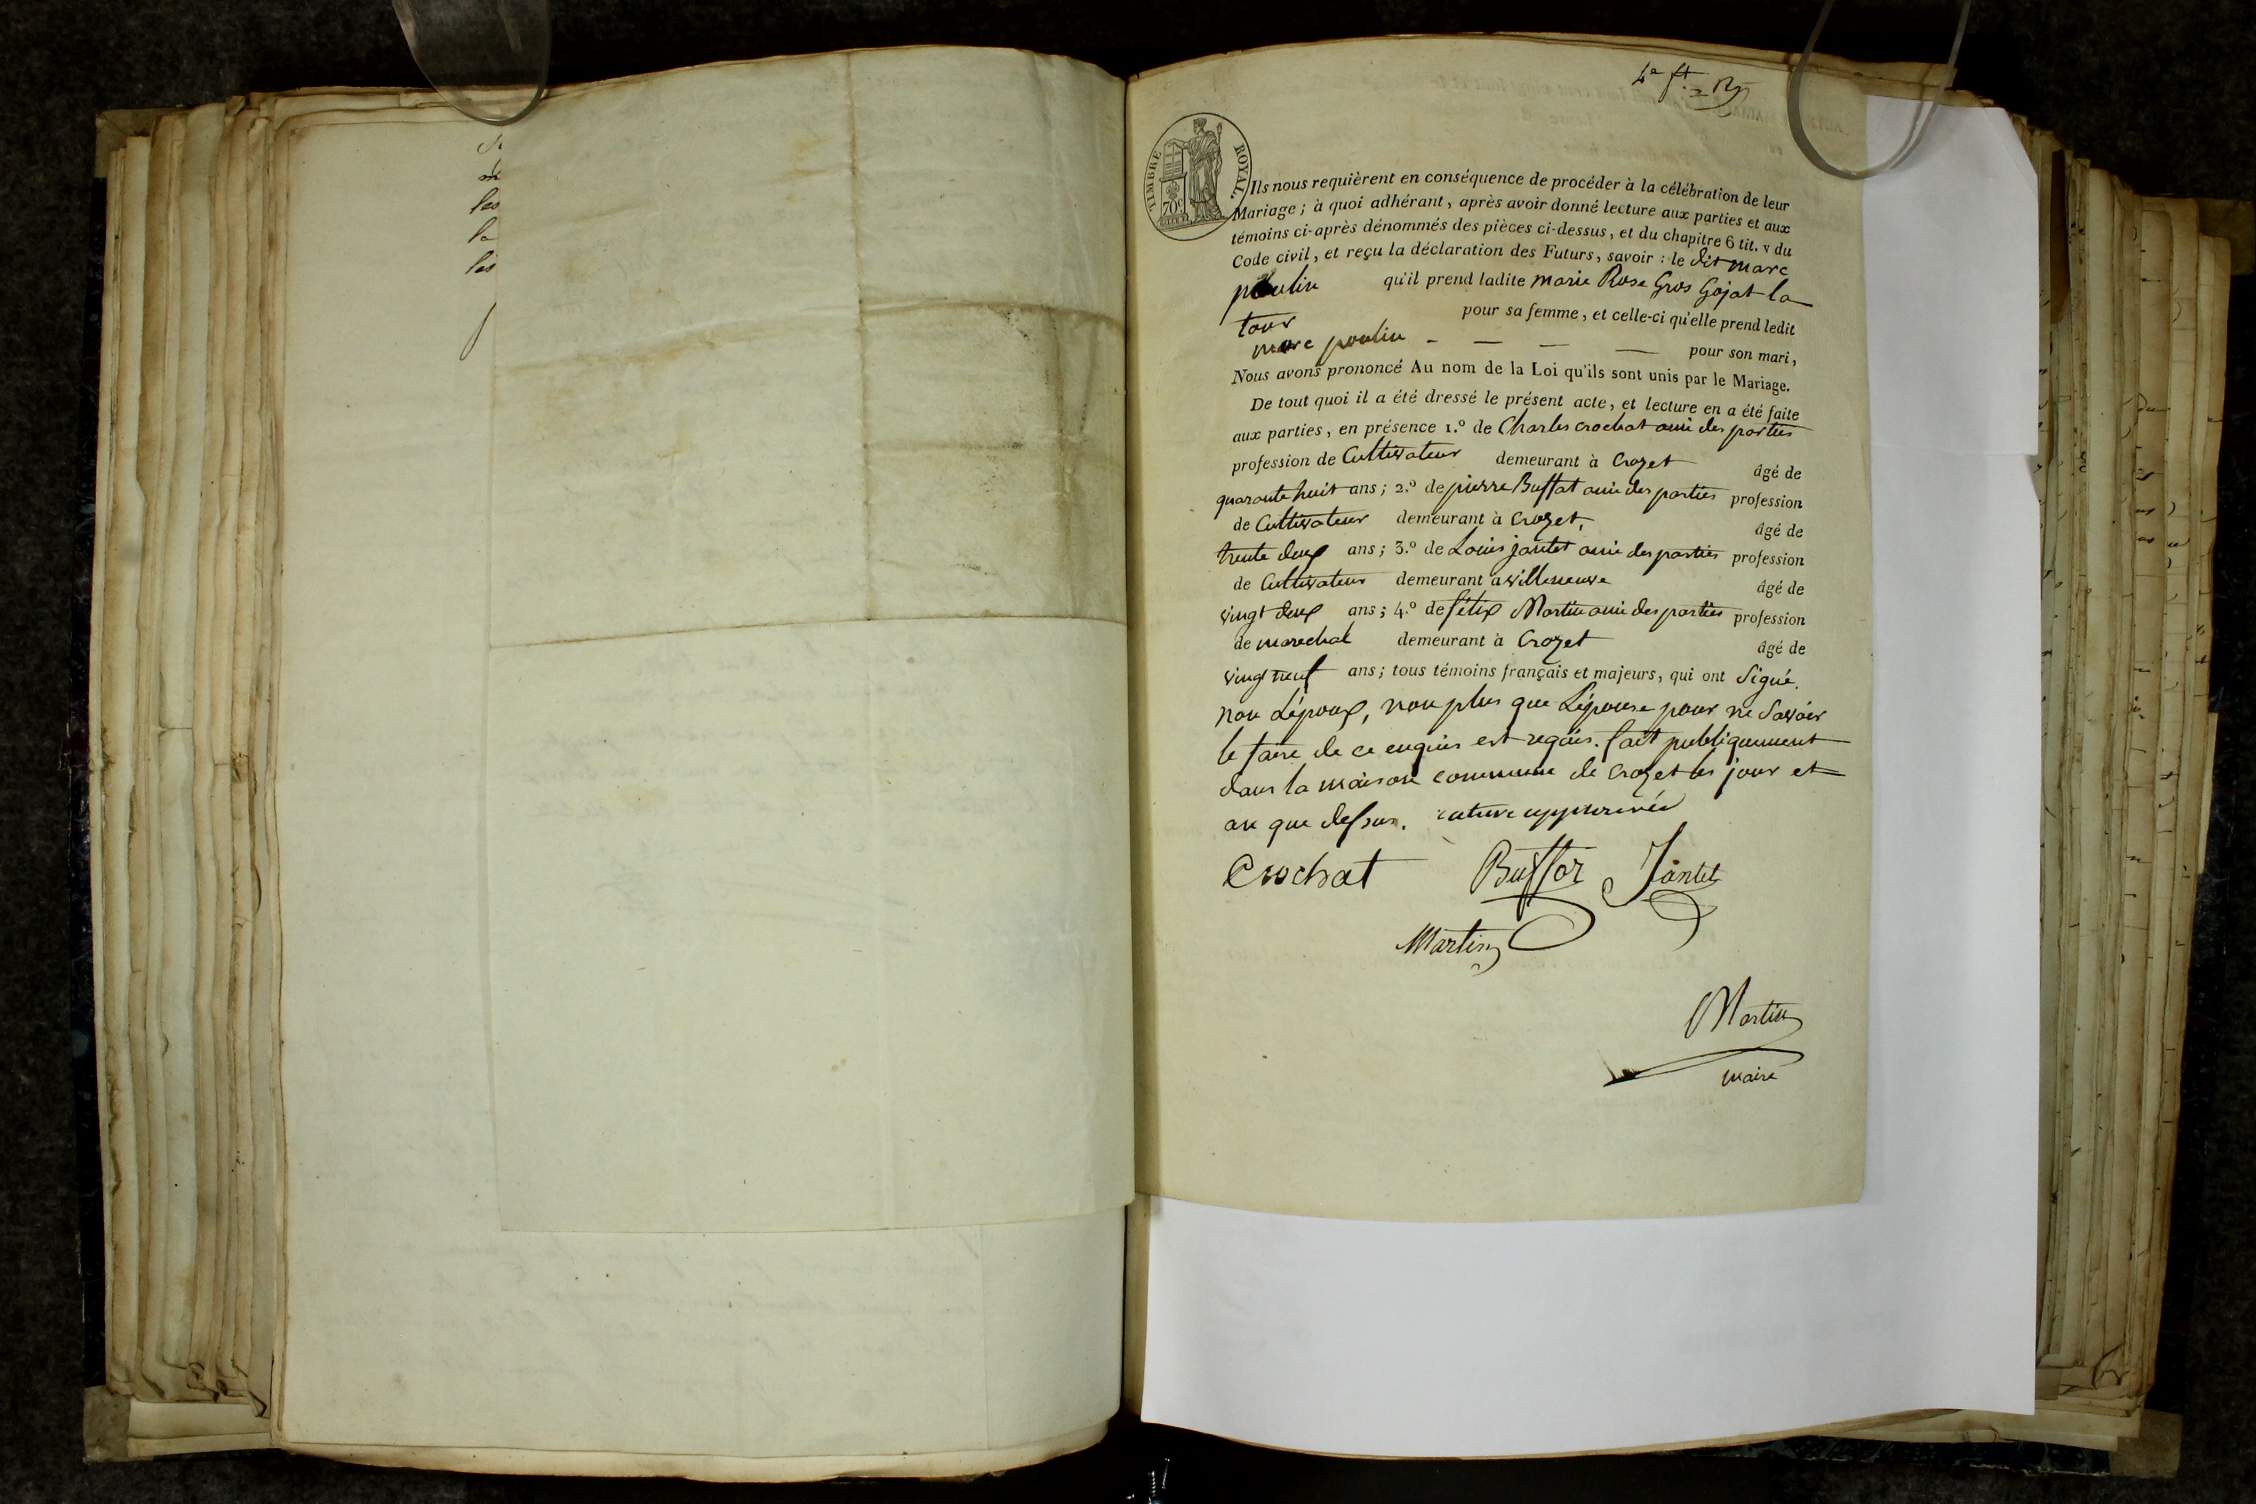 m
les
la
les
4e ft.
TIMBRE ROYAL
70c
Ils nous requièrent en conséquence de procéder à la célébration de leur
Mariage ; à quoi adhérant, après avoir donné lecture aux parties et aux
témoins ci-après dénommés des pièces ci-dessus, et du chapitre 6 tit. v du
Code civil, et reçu la déclaration des Futurs, savoir : le dit marc
poulin qu'il prend ladite marie Rose Gros Gojat la
tour pour sa femme, et celle-ci qu'elle prend ledit
marc poulin - — — — pour son mari,
Nous avons prononcé Au nom de la Loi qu'ils sont unis par le Mariage.
De tout quoi il a été dressé le présent acte, et lecture en a été faite
aux parties, en présence 1.º de Charles crochat ami des parties
profession de Cultivateur demeurant à Crozet âgé de
quarante huit ans ; 2.º de pierre Buffat ami des parties profession
de Cultivateur demeurant à Crozet, âgé de
trente deux ans ; 3.º de Louis jantet ami des parties profession
de Cultivateur demeurant a villeneuve âgé de
vingt deux ans ; 4.º de félix Martin ami des parties profession
de marechal demeurant à Crozet âgé de
vingt neuf ans ; tous témoins français et majeurs, qui ont Signé.
non L'époux, non plus que L'épouse pour ne Savoir
le faire de ce enquis est requis. fait publiquement
dans la maison commune de Crozet les jour et
an que dessus. rature approuvée
Crochat Buffat Jantet
Martin
Martin
maire